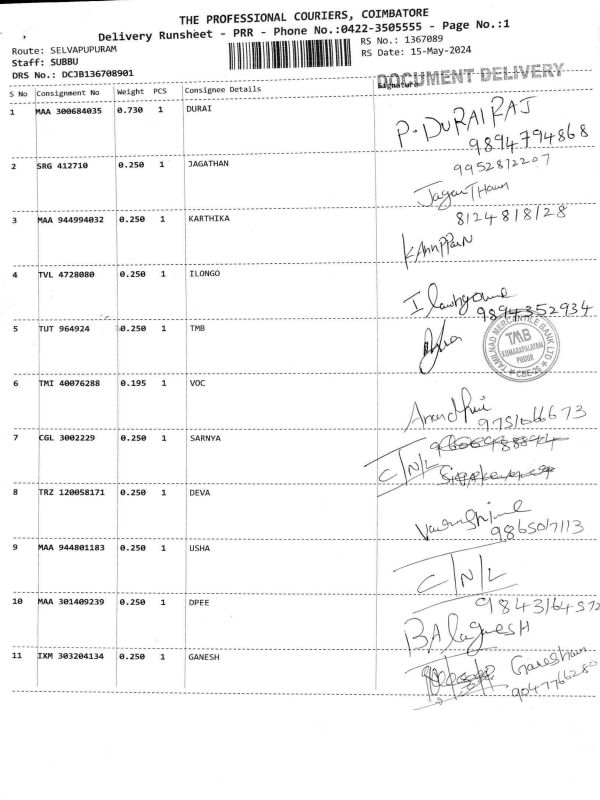 THE PROFESSIONAL COURIERS, COIMBATORE
Delivery Runsheet - PRR - Phone No.:0422-3505555 - Page No.:1
Route: SELVAPUPURAM
RS No.: 1367089
Staff: SUBBU
RS Date: 15-May-2024
DRS No.: DCJB136708901
DOCUMENT DELIVERY
S No Consignment No Weight PCS Consignee Details Signature
1 MAA 300684035 0.730 1 DURAI
P. DURAIRAJ
9894794868
2 SRG 412710 0.250 1 JAGATHAN
9952872207
3 MAA 944994032 0.250 1 KARTHIKA
8124818128
4 TVL 4728080 0.250 1 ILONGO
9894352934
5 TUT 964924 0.250 1 TMB
TAMILNAD MERCANTILE BANK LTD
TMB
KUMARAPALAYAM
PUDUR
CBE-26
6 TMI 40076288 0.195 1 VOC
9751066673
7 CGL 3002229 0.250 1 SARNYA
C/N/L
8 TRZ 120058171 0.250 1 DEVA
9865017113
9 MAA 944801183 0.250 1 USHA
C/N/L
10 MAA 301409239 0.250 1 DPEE
9843164572
BAlaganesH
11 IXM 303204134 0.250 1 GANESH
9047766280